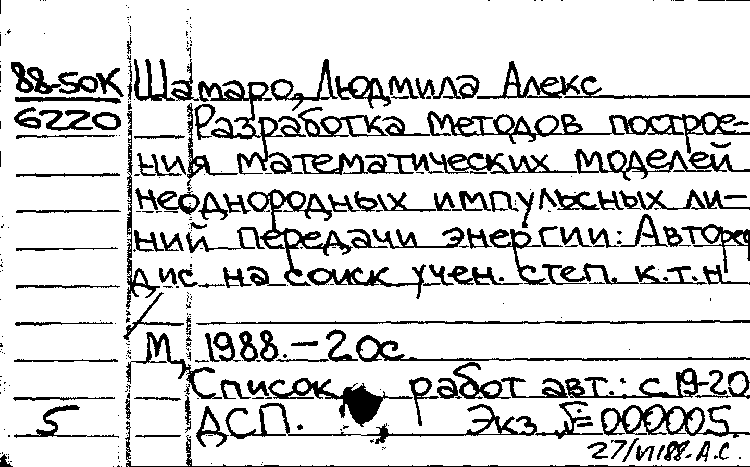 88-50К Шамаро, Людмила Алекс
6220 Разработка методов построе-
ния математических моделей
неоднородных импульсных ли-
ний передачи энергии: Автореф
дис. на соиск учен. степ. к.т.н
М, 1988. – 20с.
Список работ авт.: с.19-20
5 ДСП. Экз. №=000005.
27/VI188. А.С.